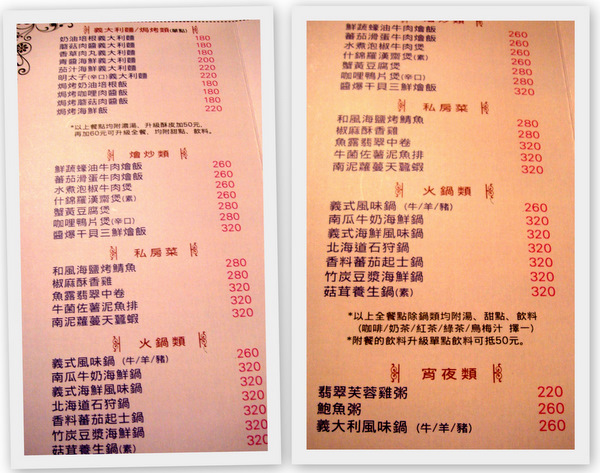 義大利麵/焗烤類(單點)
奶油培根義大利麵 180
蘑菇肉醬義大利麵 180
香草肉丸義大利麵 180
青醬海鮮義大利麵 200
茄汁海鮮義大利麵 220
明太子(辛口)義大利麵 220
焗烤奶油培根飯 180
焗烤咖哩肉醬飯 180
焗烤蘑菇肉醬飯 180
焗烤海鮮飯 220
*以上餐點均附濃湯、升級酥皮加50元。
再加60元可升級全餐、均附甜點、飲料。
燴炒類
鮮蔬蠔油牛肉燴飯 260
蕃茄滑蛋牛肉燴飯 260
水煮泡椒牛肉煲 260
什錦羅漢齋煲(素) 260
蟹黃豆腐煲 280
咖哩鴨片煲(辛口) 280
醬爆干貝三鮮燴飯 320
私房菜
和風海鹽烤鯖魚 280
椒麻酥香雞 280
魚露翡翠中卷 320
牛菌佐薯泥魚排 320
南泥蘿蔓天蝦 320
火鍋類
義式風味鍋 (牛/羊/豬) 260
南瓜牛奶海鮮鍋 320
義式海鮮風味鍋 320
北海道石狩鍋 320
香料蕃茄起士鍋 320
竹炭豆漿海鮮鍋 320
菇茸養生鍋(素) 320
鮮蔬蠔油牛肉燴飯 260
蕃茄滑蛋牛肉燴飯 260
水煮泡椒牛肉煲 260
什錦羅漢齋煲(素) 260
蟹黃豆腐煲 280
咖哩鴨片煲(辛口) 280
醬爆干貝三鮮燴飯 320
私房菜
和風海鹽烤鯖魚 280
椒麻酥香雞 280
魚露翡翠中卷 320
牛菌佐薯泥魚排 320
南泥蘿蔓天蝦 320
火鍋類
義式風味鍋 (牛/羊/豬) 260
南瓜牛奶海鮮鍋 320
義式海鮮風味鍋 320
北海道石狩鍋 320
香料蕃茄起士鍋 320
竹炭豆漿海鮮鍋 320
菇茸養生鍋(素) 320
*以上全餐點除鍋類均附湯、甜點、飲料
(咖啡/奶茶/紅茶/綠茶/烏梅汁 擇一)
*附餐的飲料升級單點飲料可抵50元。
宵夜類
翡翠芙蓉雞粥 220
鮑魚粥 260
義大利風味鍋 (牛/羊/豬) 260